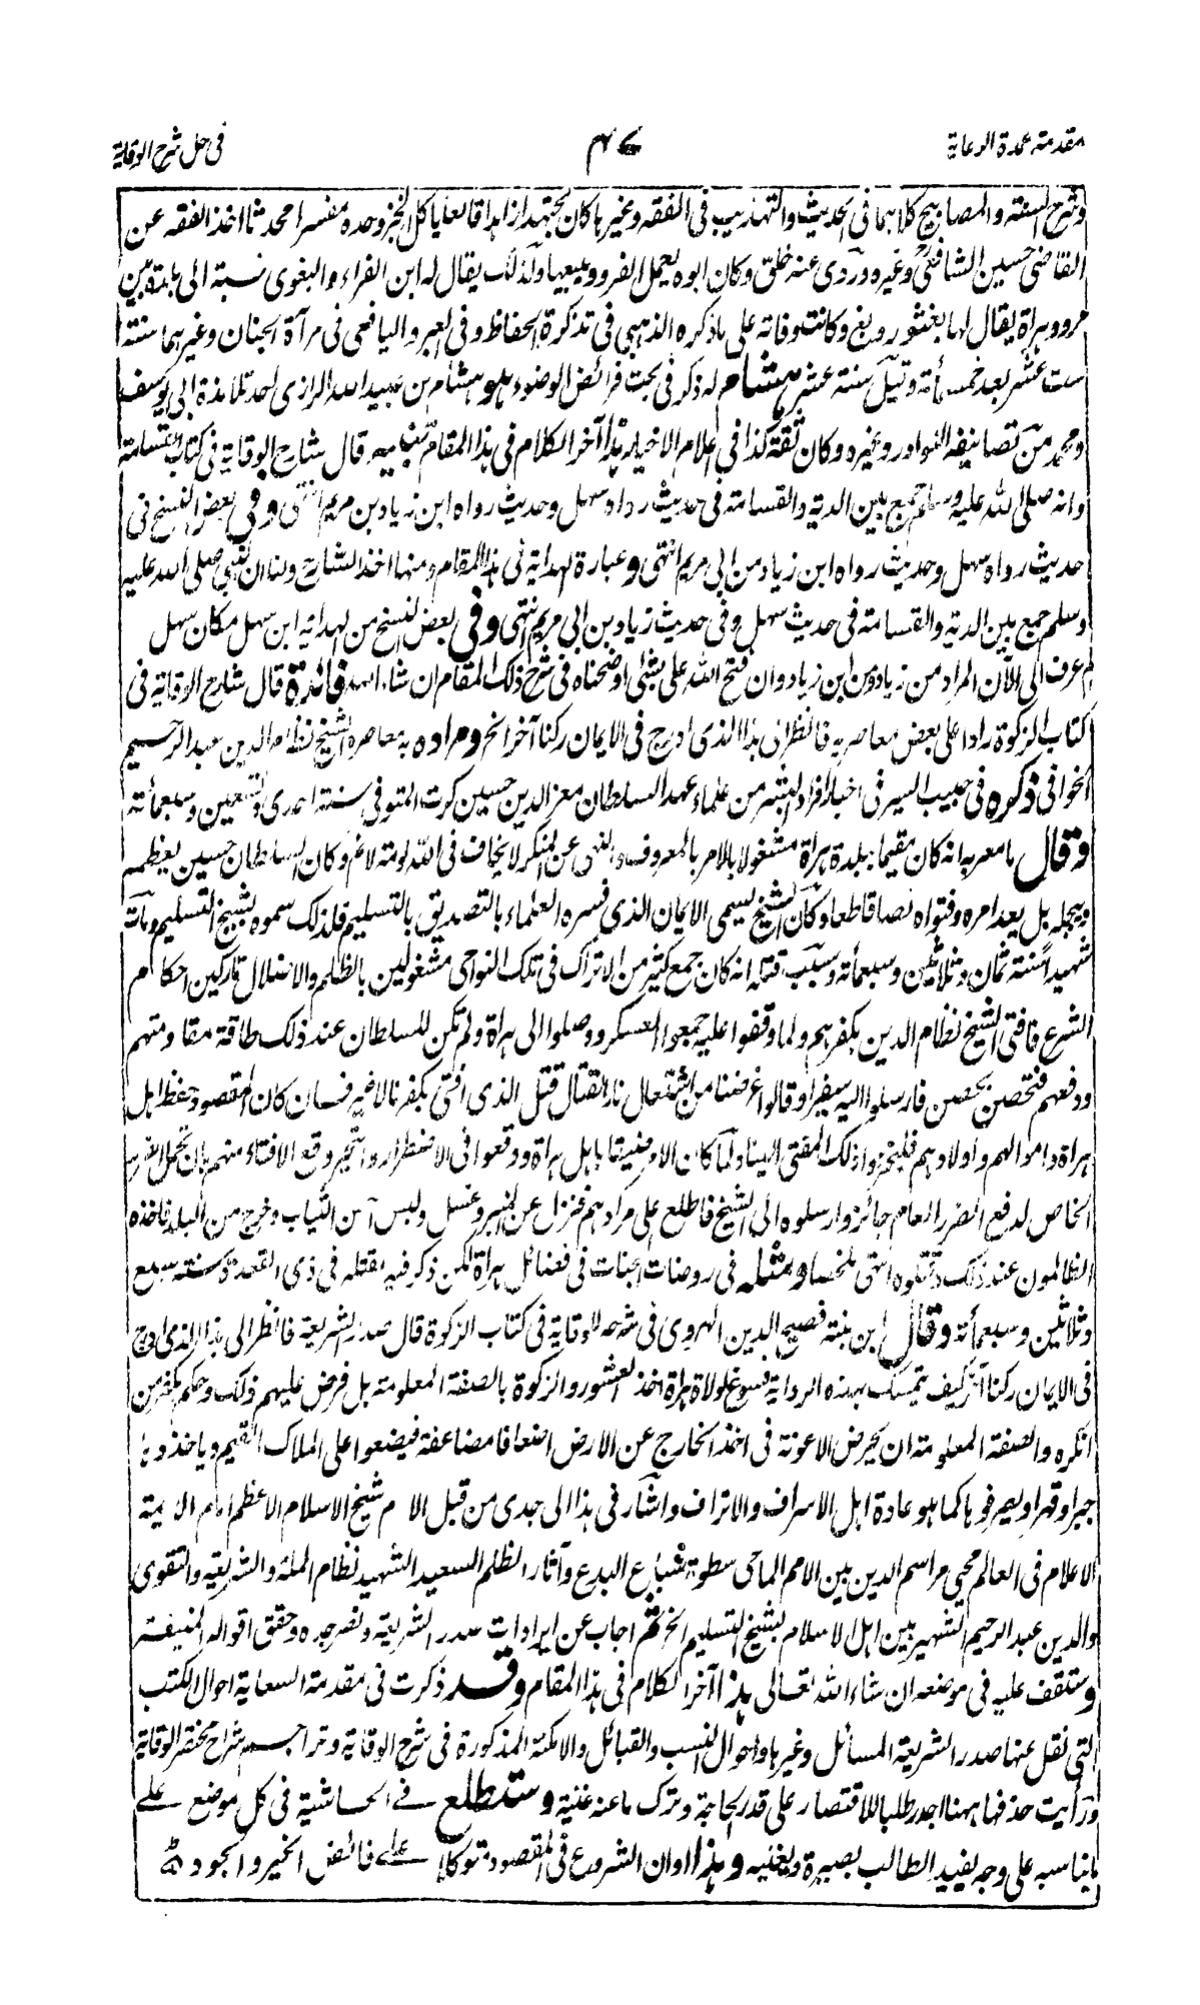 مقدمة عمدة الرعاية
٤٧
فى حل شرح الوقاية
وشرح السنة والمصابيح كلاهما فى الحديث والتهذيب فى الفقه وغيرها كان مجتهدا زاهدا قانعا ياكل الخبز وحده مفسرا محدثا اخذ الفقه عن
القاضى حسين الشافعى وغيره وروى عنه خلق وكان ابوه يعمل الفرو ويبيعها ولذلك يقال له ابن الفراء والبغوى نسبة الى بلدة بين
مرو وهراة يقال لها بغشور وبغ وكانت وفاته على ما ذكره الذهبى فى تذكرة الحفاظ وفى العبر واليافعى فى مرآة الجنان وغيرهما سنة
ست عشر بعد خمسمأته وقيل سنة عشر هشام له ذكر فى بحث فرائض الوضوء هو هشام بن عبيد الله الرازى احد تلامذة ابى يوسف
ومحمد من تصانيفه النوادر وغيره وكان ثقة كذا فى اعلام الاخيار هذا آخر الكلام فى هذا المقام تنبيه قال شارح الوقاية فى كتاب القسامة
وانه صلى الله عليه وسلم جمع بين الدية والقسامة فى حديث رواه سهل وحديث رواه ابن زياد بن مريم انتهى وفى بعض النسخ فى
حديث رواه سهل وحديث رواه ابن زياد من ابى مريم انتهى وعبارة الهداية فى هذا المقام ومنها اخذ الشارح ولنا ان النبى صلى الله عليه
وسلم جمع بين الدية والقسامة فى حديث سهل وفى حديث زياد بن ابى مريم انتهى وفى بعض النسخ من الهداية ابن سهل مكان سهل
لم اعرف الى الآن المراد من زياد ومن ابن زياد وان فتح الله على بشئ اوضحناه فى شرح ذلك المقام ان شاء الله فائدة قال شارح الوقاية فى
كتاب الزكوة رادا على بعض معاصريه فانظر الى هذا الذى ادرج فى الايمان ركنا آخر الخ ومراده به معاصره الشيخ نظام الدين عبد الرحيم
الخوافى ذكره فى حبيب السير فى اخبار افراد البشر من علماء عهد السلطان معز الدين حسين كرت المتوفى سنة احدى وسبعين وسبعمأته
وقال ما معربه انه كان مقيما ببلدة هراة مشغولا بالامر بالمعروف والنهى عن المنكر لا يخاف فى الله لومة لائم وكان السلطان حسين يعظمه
ويبجله بل يعد امره وفتواه نصا قاطعا وكان الشيخ يسمى الايمان الذى فسره العلماء بالتصديق بالتسليم فلذلك سموه بشيخ التسليم ومات
شهيدا سنة ثمان وثلاثين وسبعمأته وسبب قتله انه كان جمع كثير من الاتراك فى تلك النواحى مشغولين بالظلم والاضلال تاركين احكام
الشرع فافتى الشيخ نظام الدين بكفرهم ولما وقفوا عليه جمعوا العسكر ووصلوا الى هراة ولم تكن للسلطان عند ذلك طاقة مقاومتهم
ودفعهم فتحصن بحصن فارسلوا اليه سفيرا وقالوا غرضنا من اشتعال نار القتال قتل الذى افتى بكفرنا لا غير فان كان المقصود حفظ اهل
هراة واموالهم واولادهم فليخرجوا ذلك المفتى الينا ولما كان الامر ضيقا باهل هراة ووقعوا فى الاضطرار والتحير وقع الافتاء منهم بان تحمل الضرر
الخاص لدفع الضرر العام جائز وارسلوه الى الشيخ فاطلع على مرادهم فنزل عن المنبر وغسل ولبس احسن الثياب وخرج من البلد فاخذه
الظالمون عند ذلك وقتلوه انتهى ملخصا ومثله فى روضات الجنات فى فضائل هراة لكن ذكر فيه قتله فى ذى القعدة سنة سبع
وثلاثين وسبعمأته وقال ابن بنته فصيح الدين الهروى فى شرحه للوقاية فى كتاب الزكوة قال صدر الشريعة فانظر الى هذا الذى ادرج
فى الايمان ركنا آخر كيف يتمسك بهذه الرواية فسوغ لولاة هراة اخذ العشور والزكوة بالصفة المعلومة بل فرض عليهم ذلك وحكم بكفر من
انكره والصفة المعلومة ان يحرض الاعونة فى اخذ الخارج عن الارض اضعافا مضاعفة فيضعوا على الملاك القيم وياخذوها
جبرا وقهرا ويصرفوها كما هو عادة اهل الاسراف والاتراف واشار فى هذا الى جدى من قبل الام شيخ الاسلام الاعظم امام الائمة
الاعلام فى العالم محيى مراسم الدين بين الامم الماحى سطوة البدع وآثار الظلم السعيد الشهيد نظام الملة والشريعة والتقوى
والدين عبد الرحيم الشهير بين اهل الاسلام بشيخ التسليم الخ ثم اجاب عن ايرادات صدر الشريعة ونصر جده وحقق اقواله المنيفة
وستقف عليه فى موضعه ان شاء الله تعالى هذا آخر الكلام فى هذا المقام وقد ذكرت فى مقدمة السعاية احوال الكتب
التى نقل عنها صدر الشريعة المسائل وغيرها واحوال النسب والقبائل والامكنة المذكورة فى شرح الوقاية وتراجم شراح مختصر الوقاية
ورأيت حذفها ههنا اجدر طلبا للاقتصار على قدر الحاجة وترك ما عنه غنية وستطلع فى الحاشية فى كل موضع على
ما يناسبه على وجه يفيد الطالب بصيرة ويغنيه وهذا اوان الشروع فى المقصود متوكلا على فائض الخير والجود